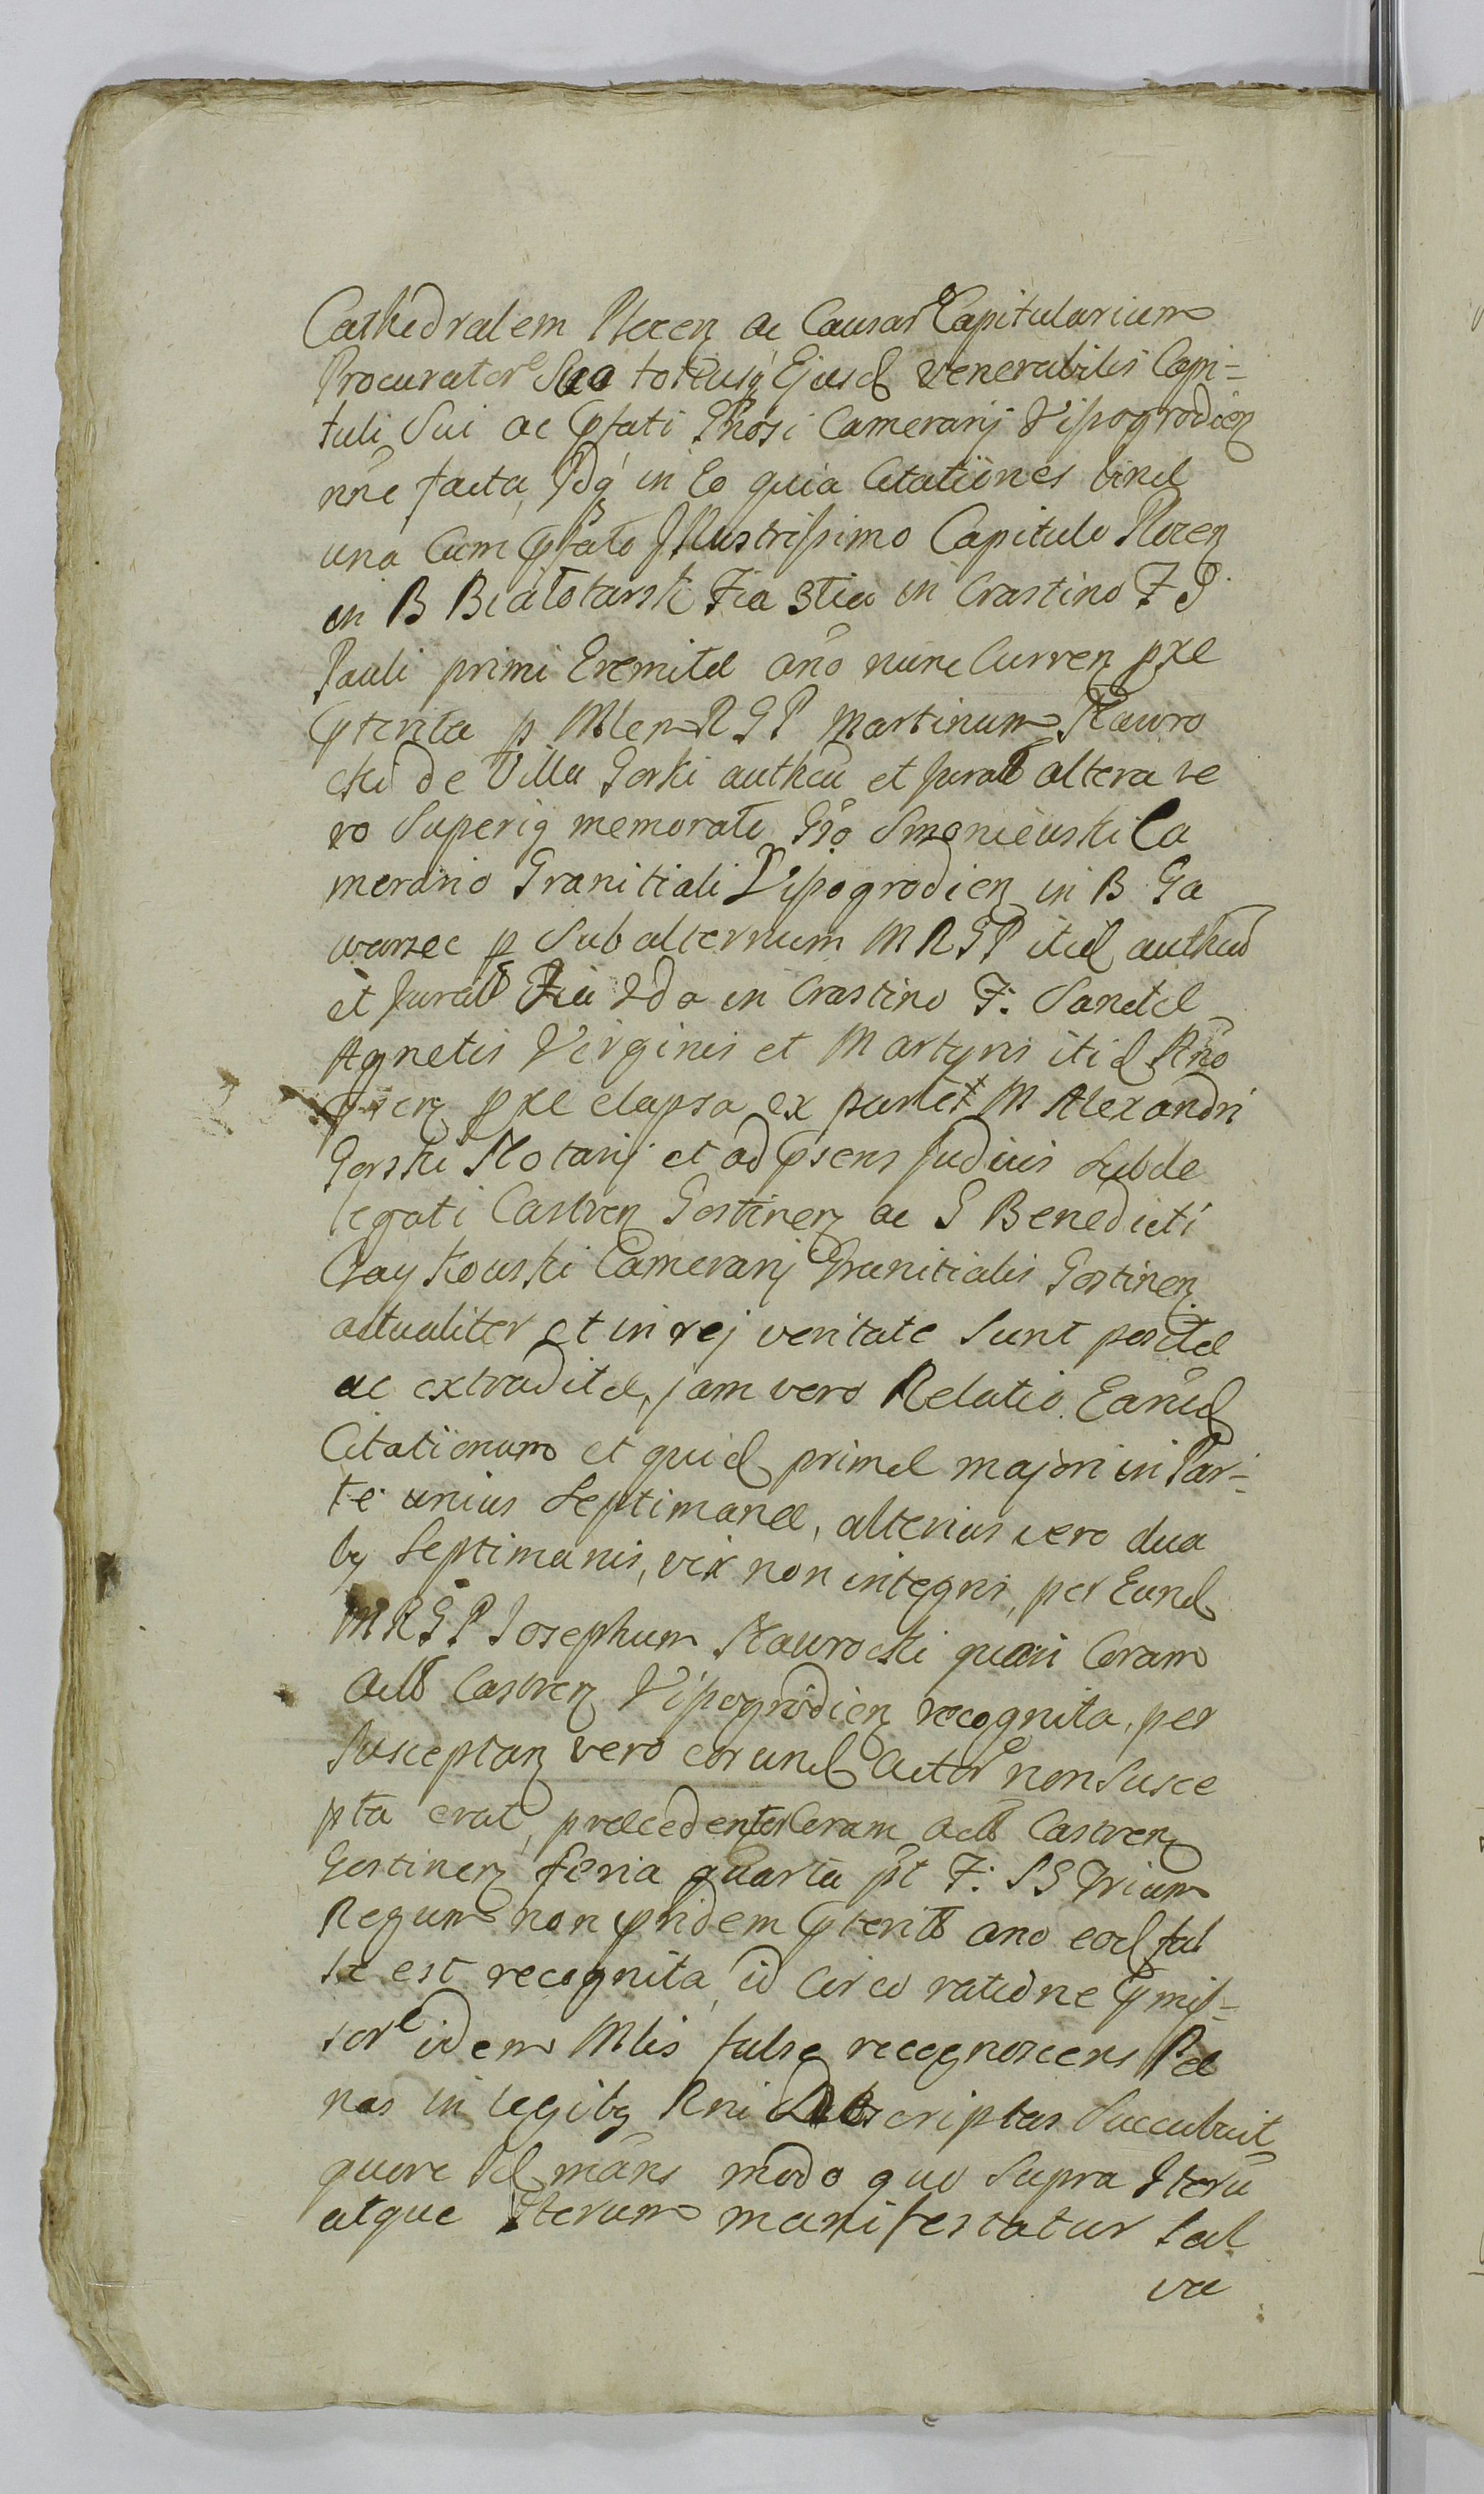 Cathedralem Plocen ac Causar Capitularium
Procurator Suo totiusq Ejusd venerabilis Capi-
tuli Sui ac pfati Gnosi Camerarij Vissogrodien
nne facta, Idq in Eo quia Citationes binæ
una cum pfato Illustrissimo Capitulo Plocen
in B Białotarsk Fia 3tia in Crastino F S
Pauli primi Eremitæ año nunc Curren pxe
pterita p Mlem RGP Martinum Nawro
cki de Villa Gorski authcu et jurat altera ve
ro Superiq memorato Gño Smoniewski Ca
merario Granitiali Vissogrodien in B Ga
warzec p Subalternum MRGP itid authcu
et jurat Fia 2da in Crastino F: Sanctæ
Agnetis Virginis et Martyris itid Año
psen pxe elapsa ex parte M Alexandri
Gorski Notarij et ad psens Judicis Subde
legati Castren Gostinen ac G Benedicti
Czaykowski Camerarij Granitialis Gostinen
actualiter et in rej veritate sunt positæ
ac extraditæ, jam vero Relatio Earund
Citationum et quid primæ majori in Par-
te unius Septimanæ, alterius vero dua
bq Septimanis, vix non integris, per Eund
MRGP Josephum Nawrocki quasi Coram
Actis Castren Vissogrodien recognita, per
Susceptan vero eorund Actor non susce
pta erat, præcedenter Coram Actis Castren
Gostinen feria quarta pt F: SS Trium
Regum non pridem pterit ano eod fal
se est recognita, id circo ratione pmis-
sor idem Mlis false recognoscens Pæ
nas in legibq Rni Descriptas Succubuit
quare Id mãns modo quo Supra Iteru
atque Iterum manifestatur Sal
va